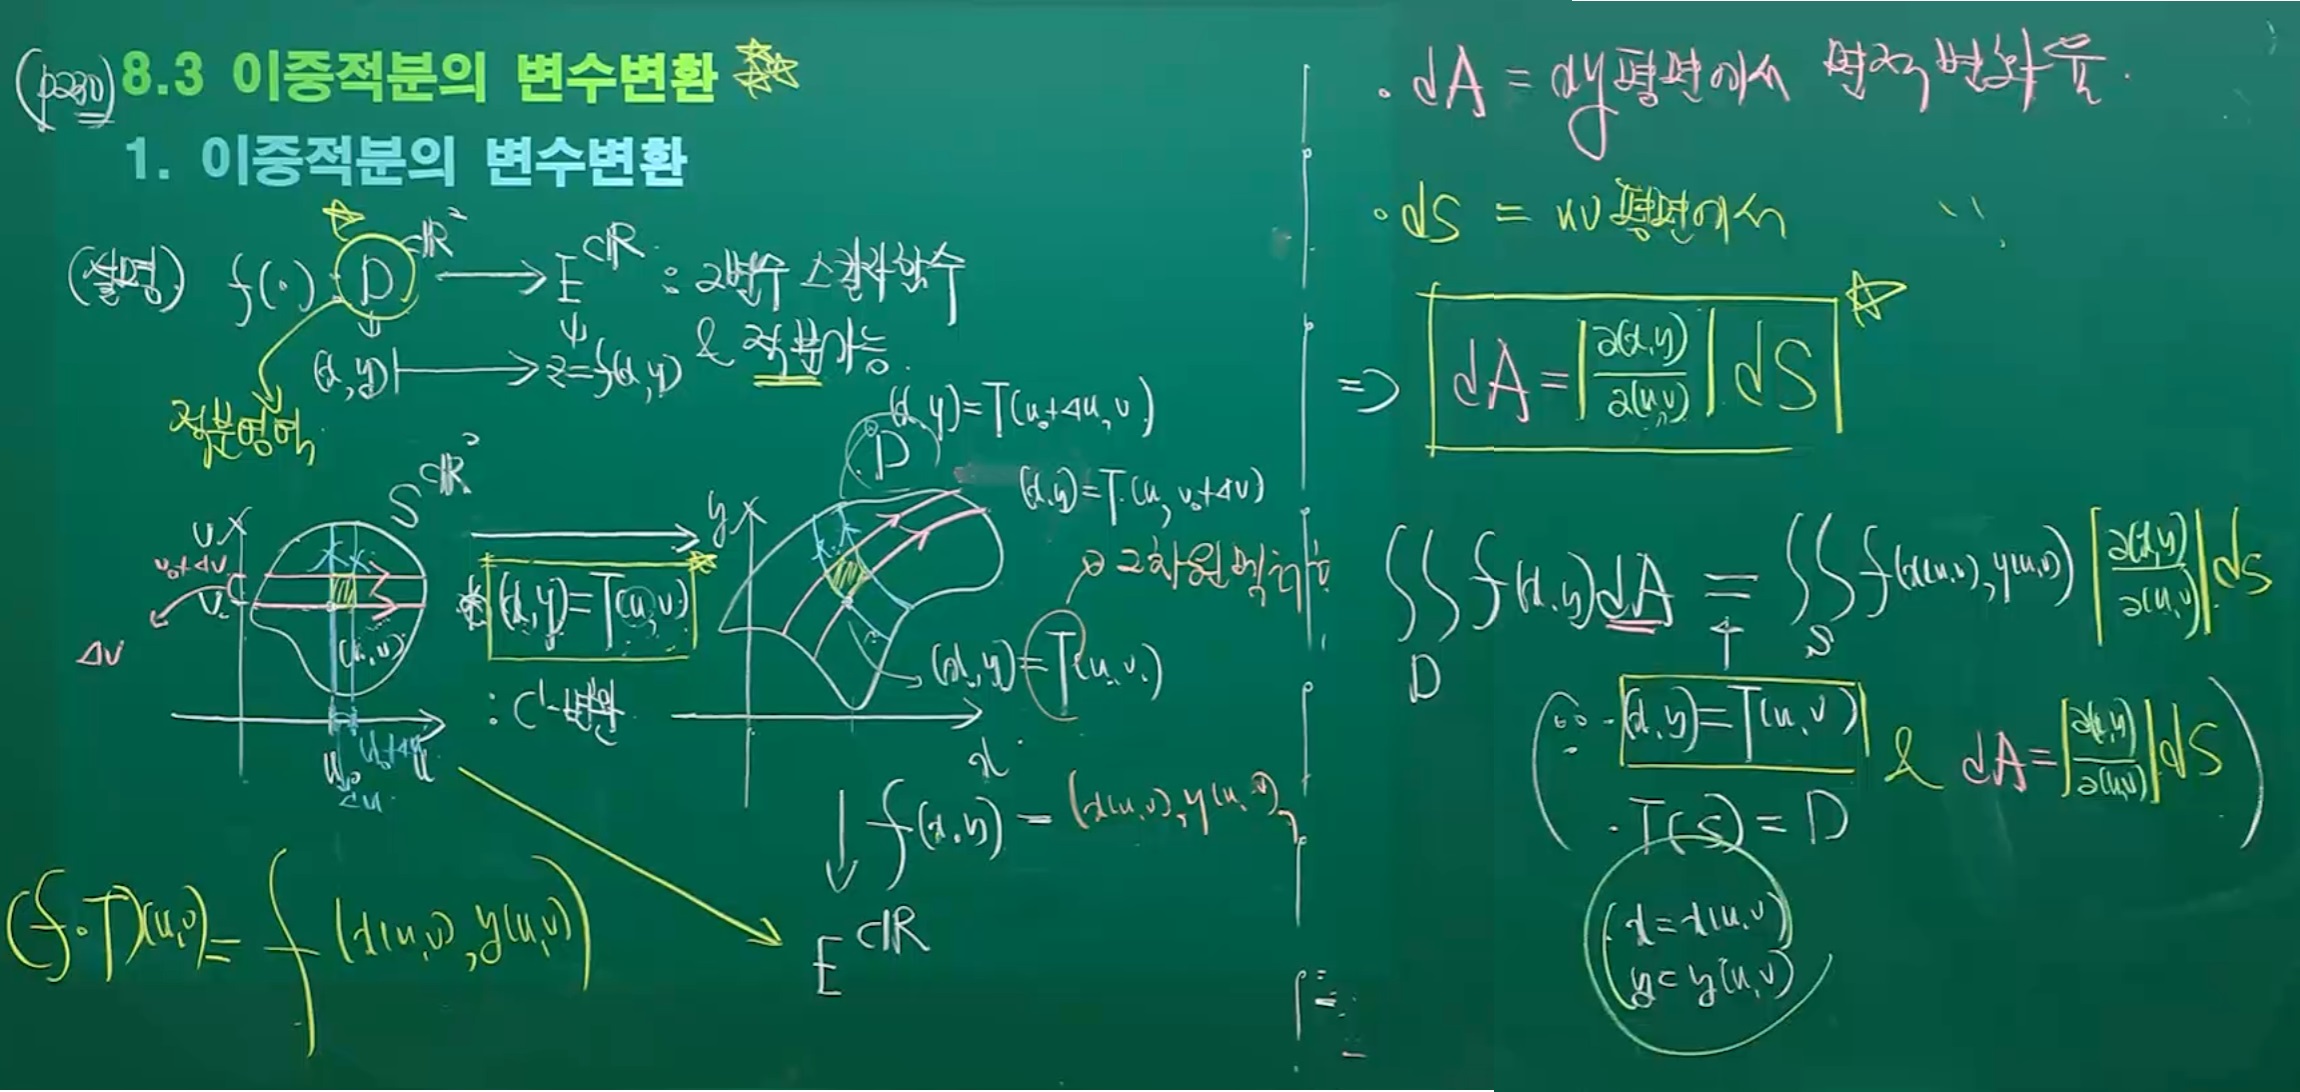 (p230) 8.3 이중적분의 변수변환
1. 이중적분의 변수변환
(설명) f(·) : D ⊂ℝ² → E ⊂ℝ : 2변수 스칼라함수
(x,y) ↦ z=f(x,y) & 적분가능.
적분영역
S ⊂ℝ²
v
v₀+Δv
v₀
Δv
(u₀,v₀)
u₀ u₀+Δu u
Δu
(x,y)=T(u,v)
: C¹-변환
D
y
x
(x,y)=T(u₀+Δu, v)
(x,y)=T(u, v₀+Δv)
(x,y)=T(u₀,v₀)
↓ f(x,y) = (x(u,v), y(u,v))
E ⊂ℝ
(f∘T)(u,v) = f(x(u,v), y(u,v))
· dA = xy평면에서 면적변화율.
· dS = uv평면에서 〃
⇒ dA = |∂(x,y)/∂(u,v)| dS
∬_D f(x,y) dA = ∬_S f(x(u,v), y(u,v)) |∂(x,y)/∂(u,v)| dS
↑
(∵ · (x,y)=T(u,v) & dA = |∂(x,y)/∂(u,v)| dS)
· T(S) = D
x = x(u,v)
y = y(u,v)